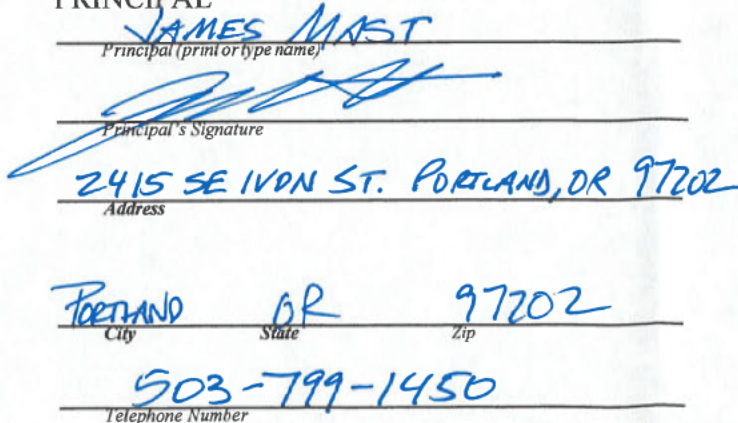 PRINCIPAL
JAMES MAST
Principal (print or type name)
Principal's Signature
2415 SE IVON ST. PORTLAND, OR 97202
Address
PORTLAND OR 97202
City State Zip
503-799-1450
Telephone Number